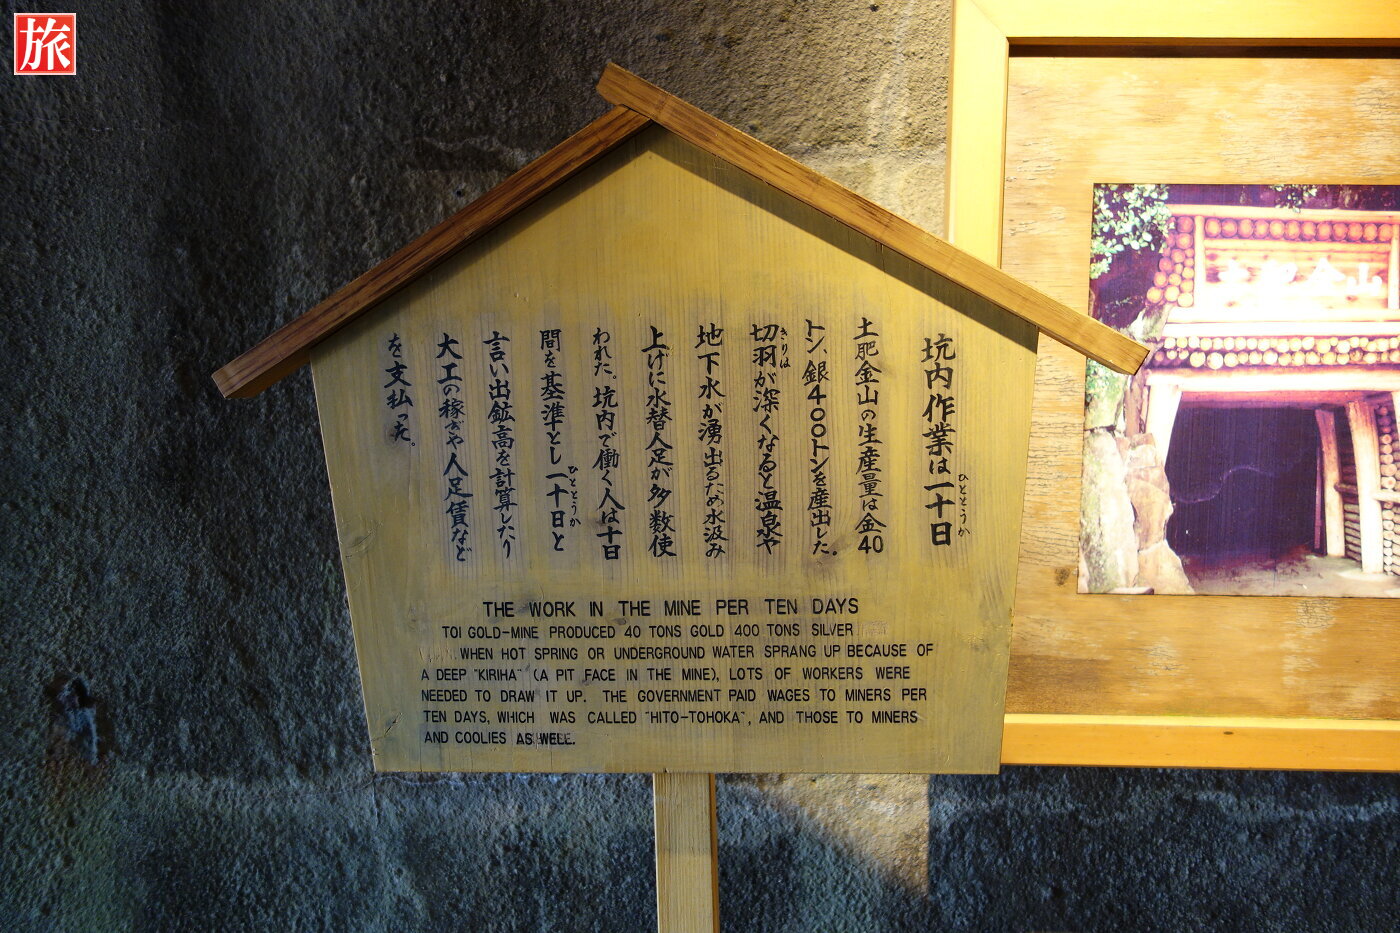 旅
坑内作業は一十日
ひととうか
土肥金山の生産量は金40
トン、銀400トンを産出した。
切羽が深くなると温泉や
きりは
地下水が湧出るため水汲み
上げに水替人足が多数使
われた。坑内で働く人は十日
間を基準とし一十日と
ひととうか
言い出鉱高を計算したり
大工の稼ぎや人足賃など
を支払った。
THE WORK IN THE MINE PER TEN DAYS
TOI GOLD-MINE PRODUCED 40 TONS GOLD 400 TONS SILVER
WHEN HOT SPRING OR UNDERGROUND WATER SPRANG UP BECAUSE OF
A DEEP "KIRIHA" (A PIT FACE IN THE MINE), LOTS OF WORKERS WERE
NEEDED TO DRAW IT UP. THE GOVERNMENT PAID WAGES TO MINERS PER
TEN DAYS, WHICH WAS CALLED "HITO-TOHOKA", AND THOSE TO MINERS
AND COOLIES AS WELL.
土肥金山